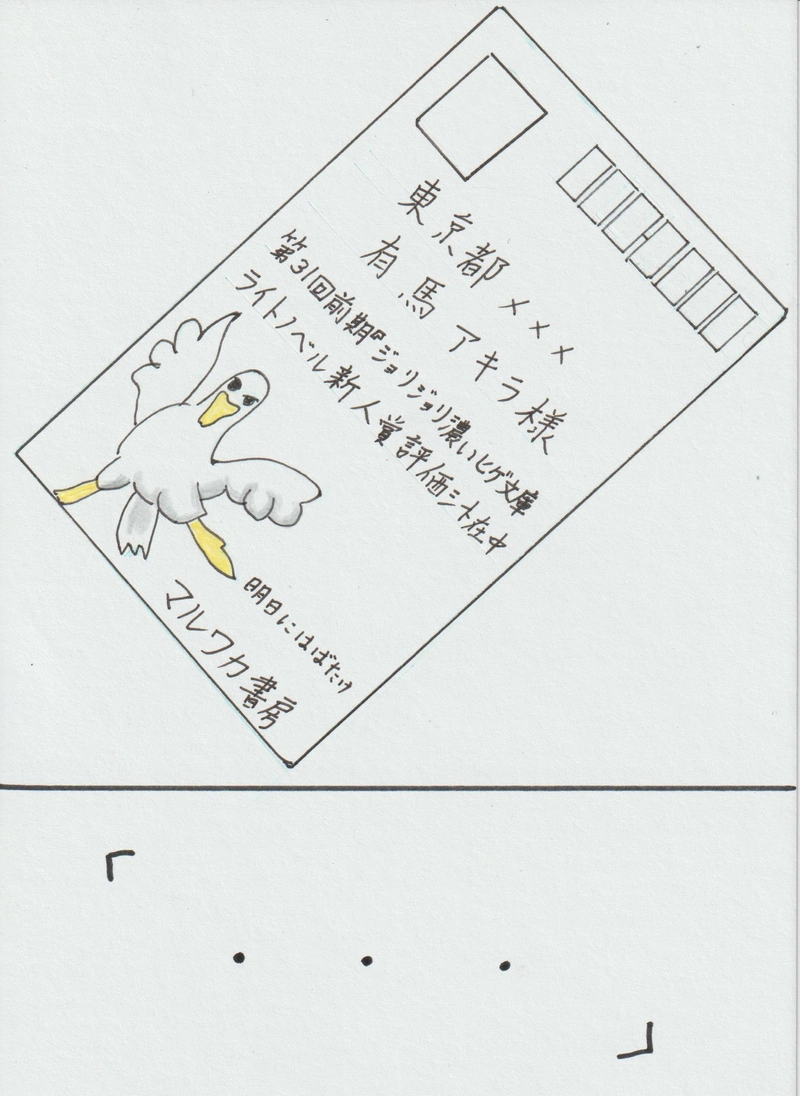 東京都×××
有馬アキラ様
第31回前期『ジョリジョリ濃いヒゲ文庫
ライトノベル新人賞評価シート在中
明日にはばたけ
マルワカ書房
「
・・・
」